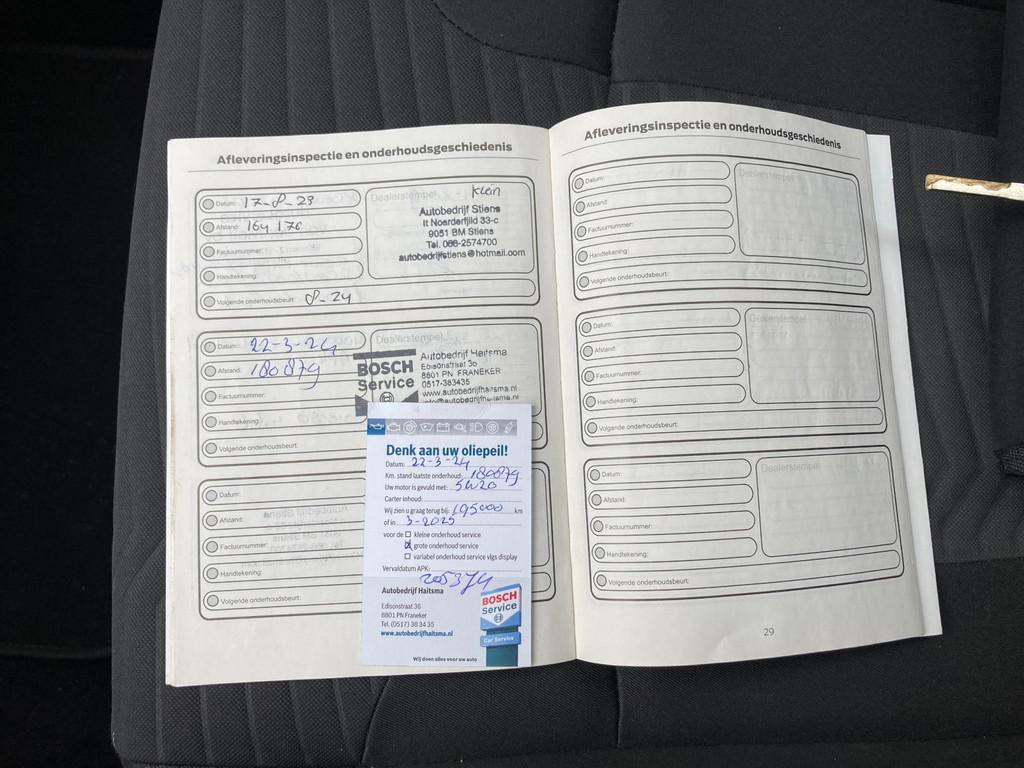 Afleveringsinspectie en onderhoudsgeschiedenis
Datum: 17-8-23
Afstand: 164 176
Factuurnummer:
Handtekening:
Volgende onderhoudsbeurt: 8-24
Dealerstempel klein
Autobedrijf Stiens
It Noarderfjild 33-c
9051 BM Stiens
Tel. 058-2574700
autobedrijfstiens@hotmail.com
Datum: 22-3-24
Afstand: 180879
Factuurnummer:
Handtekening:
Volgende onderhoudsbeurt:
Dealerstempel
BOSCH
Service
Autobedrijf Haitsma
Edisonstraat 36
8801 PN FRANEKER
0517-383435
www.autobedrijfhaitsma.nl
info@autobedrijfhaitsma.nl
Datum:
Afstand:
Factuurnummer:
Handtekening:
Volgende onderhoudsbeurt:
Denk aan uw oliepeil!
Datum: 22-3-24
Km. stand laatste onderhoud: 180879
Uw motor is gevuld met: 5W20
Carter inhoud:
Wij zien u graag terug bij: 195000 km
of in 3-2025
voor de kleine onderhoud service
grote onderhoud service
variabel onderhoud service vlgs display
Vervaldatum APK:
205374
Autobedrijf Haitsma
Edisonstraat 36
8801 PN Franeker
Tel. (0517) 38 34 35
www.autobedrijfhaitsma.nl
BOSCH
Service
Car Service
Wij doen alles voor uw auto
Afleveringsinspectie en onderhoudsgeschiedenis
Datum:
Afstand:
Factuurnummer:
Handtekening:
Volgende onderhoudsbeurt:
Dealerstempel
Datum:
Afstand:
Factuurnummer:
Handtekening:
Volgende onderhoudsbeurt:
Dealerstempel
Datum:
Afstand:
Factuurnummer:
Handtekening:
Volgende onderhoudsbeurt:
Dealerstempel
29